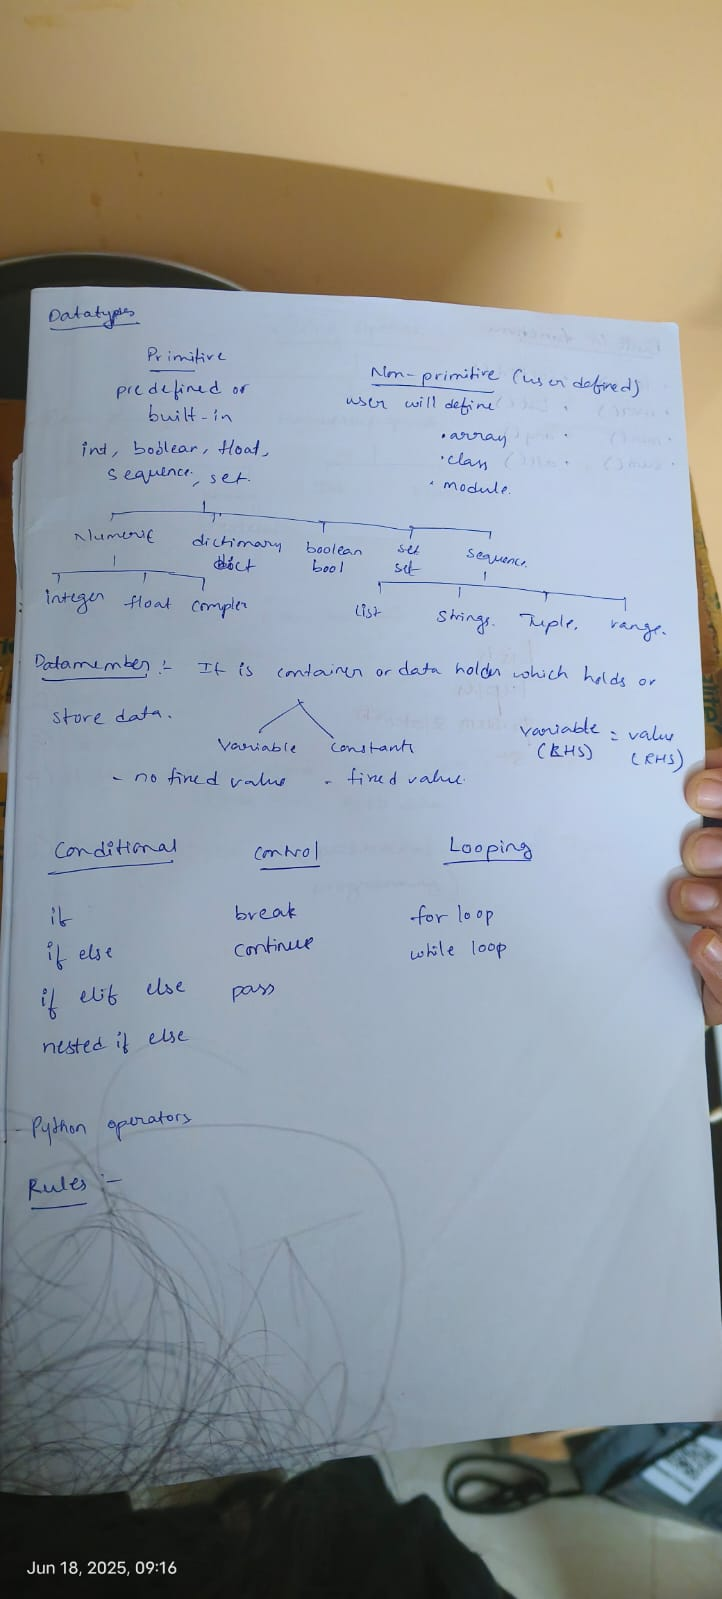 Datatypes
Primitive
predefined or
built-in
int, boolear, float,
sequence, set.
Non-primitive (user defined)
user will define
• array
• class
• module.
Numeric dictionary boolean set sequence.
dict bool set
integer float complex
list strings. Tuple. range.
Datamember :- It is container or data holder which holds or
store data.
variable constants
- no fixed value - fixed value.
variable = value
(RHS) (RHS)
Conditional control Looping
if break for loop
if else continue while loop
if elif else pass
nested if else
- Python operators
Rules :-
Jun 18, 2025, 09:16